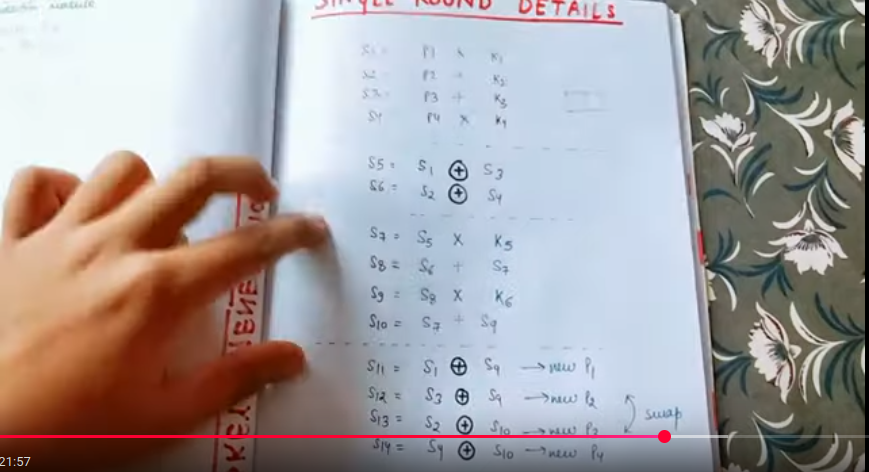 SINGLE ROUND DETAILS
S1 = P1 × K1
S2 = P2 + K2
S3 = P3 + K3
S4 P4 × K4
S5 = S1 ⊕ S3
S6 = S2 ⊕ S4
S7 = S5 × K5
S8 = S6 + S7
S9 = S8 × K6
S10 = S7 + S9
S11 = S1 ⊕ S9 → new P1
S12 = S3 ⊕ S9 → new P2
S13 = S2 ⊕ S10 → new P3
swap
S14 = S4 ⊕ S10 → new P4
KEY
21:57